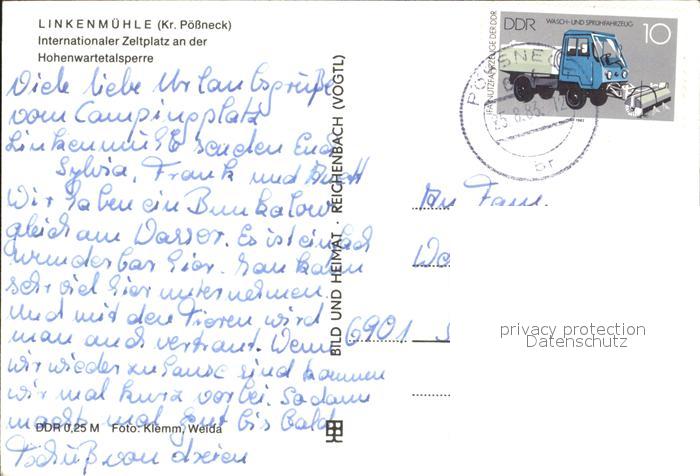 LINKENMÜHLE (Kr. Pößneck)
Internationaler Zeltplatz an der
Hohenwartetalsperre
Viele liebe Urlaubsgrüße
vom Campingplatz
Linkenmühle senden Euch
Sylvia, Frank und
Wir haben ein Bunkalow
gleich am Wasser. Es ist einfach
wunderbar hier. Man kann
sehr viel hier unternehmen.
Und mit den Tieren wird
man auch vertraut. Wenn
wir wieder zu hause sind kommen
wir mal kurz vorbei. So dann
macht mal gut bis bald
Tschüß von dreien
DDR 0,25 M Foto: Klemm, Weida
BILD UND HEIMAT · REICHENBACH (VOGTL)
DDR
WASCH- UND SPRÜHFAHRZEUG
10
IFA-NUTZFAHRZEUGE DER DDR
PÖSSNECK
An Fam.
6901
privacy protection
Datenschutz